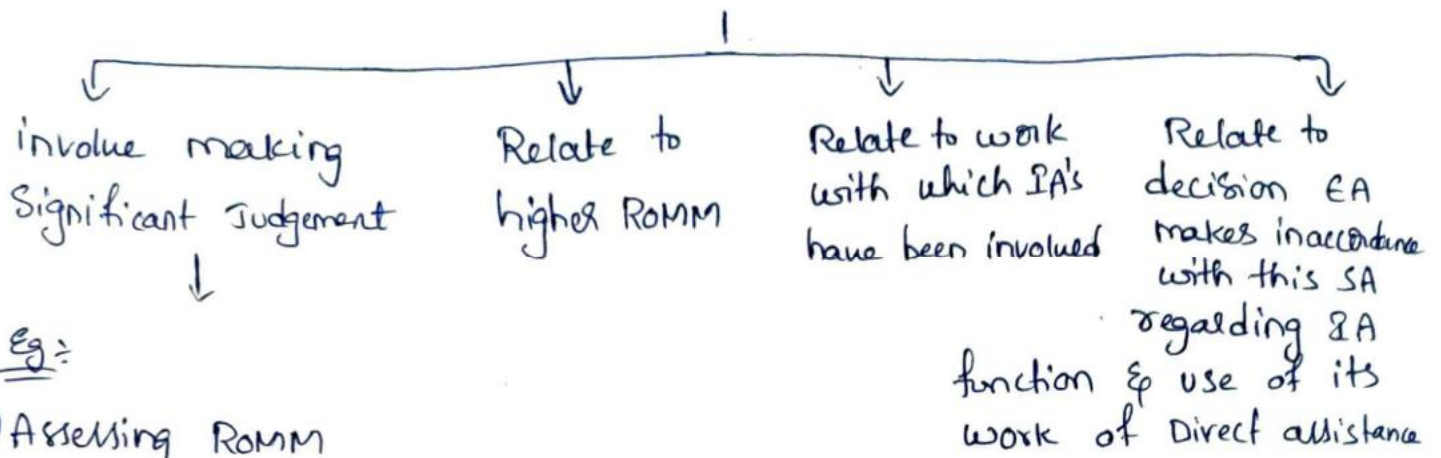 involve making
Significant Judgement
Relate to
higher ROMM
Relate to work
with which IA's
have been involved
Relate to
decision EA
makes inaccordance
with this SA
regarding IA
function & use of its
work of Direct assistance
Eg:
Assessing ROMM